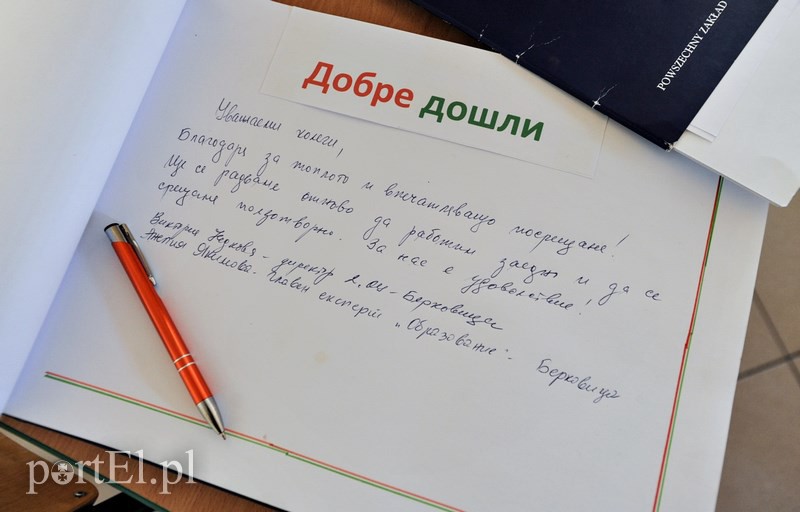 POWSZECHNY ZAKŁAD
Добре дошли
Уважаеми колеги,
Благодаря за топлото и впечатляващо посрещане!
Ще се радваме отново да работим заедно и да се
срещаме ползотворно. За нас е удоволствие!
Виктория - директор - Берковица
Якимова - главен експерт "Образование" - Берковица
portEl.pl